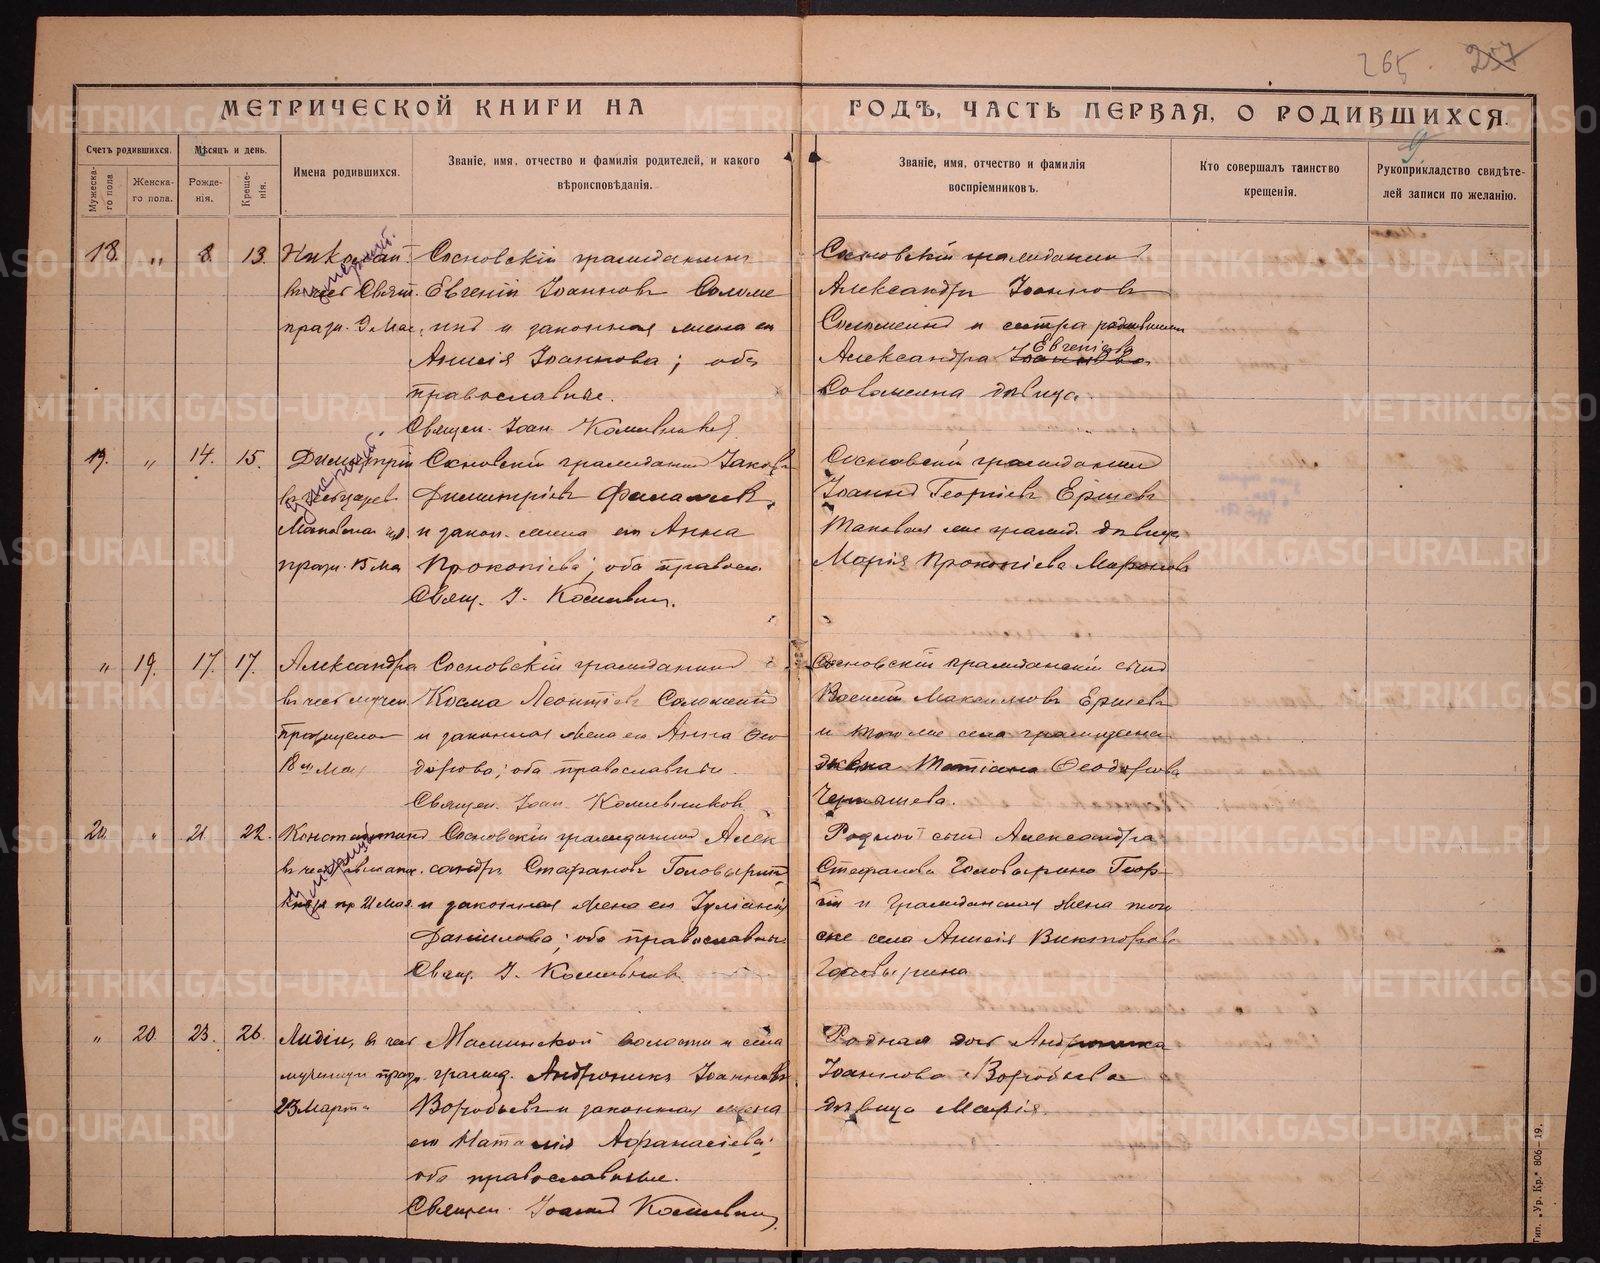 265. 257
МЕТРИЧЕСКОЙ КНИГИ НА ГОДЪ, ЧАСТЬ ПЕРВАЯ, О РОДИВШИХСЯ.
Счетъ родившихся.
Мужеска-
го пола
Женска-
го пола.
Мѣсяцъ и день.
Рожде-
нія.
Креще-
нія.
Имена родившихся.
Званіе, имя, отчество и фамилія родителей, и какого
вѣроисповѣданія.
Званіе, имя, отчество и фамилія
воспріемниковъ.
Кто совершалъ таинство
крещенія.
Рукоприкладство свидѣте-
лей записи по желанію.
18. „ 8. 13.
Николай
въ чест Свят.
празн. 9 Мая,
Сосновскій гражданинъ
Евгеній Іоанновъ Соломе
инъ и законная жена ея
Анисія Іоаннова; оба
православные.
Священ. Іоан.
Сосновскій гражданинъ
Александръ Іоанновъ
Соломеинъ и сестра
Александра Евгеніева
дѣвица.
19. „ 14. 15.
Димитрій
въ чест царев.
празн. 15 Ма
Сосновскій гражданинъ Іаковъ
Димитріевъ
и закон. жена его Анна
Прокопіева; оба правосл.
Свящ. І.
Сосновскій гражданинъ
Іоаннъ Георгіевъ Ершевъ
таковая же гражд. дѣвица
Марія Прокопіева
„ 19. 17. 17.
Александра
въ чест мучен
празднуемой
18 го Мая
Сосновскій гражданинъ
Косма Леонтіевъ Соломеинъ
и законная жена его Анна Ѳео
дорова; оба православные.
Священ. Іоан.
Сосновскій гражданскій сынъ
Василій Максимовъ Ершевъ
и того же села гражданская
жена Татіана Ѳеодорова
Чернышева.
20. „ 21. 22.
Константинъ
пр 21 Мая.
Сосновскій гражданинъ Алек
сандръ Стефановъ Головыринъ
и законная жена его Іуліанія
Даніилова; оба православные
Свящ. І.
Родной сынъ Александра
Стефанова Головырина Геор
гій и гражданская жена того
же села Анисія Викторова
Головырина
„ 20. 23. 26.
Лидія, въ чест
мученицы празд.
23 Марта
Маминской волости и села
гражд. Андроникъ Іоанновъ
Воробьевъ и законная жена
его Наталія Аѳанасіева;
оба православные.
Священ. Іоаннъ
Родная дочь Андроника
Іоаннова Воробьева
дѣвица Марія.
Тип. „Ур. Кр.“ 806—19.
METRIKI.GASO-URAL.RU